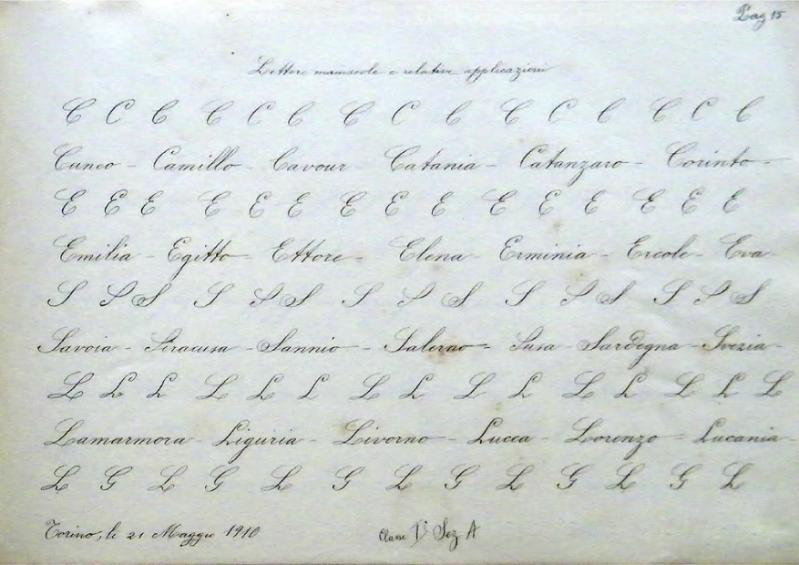 Pag 15
Lettere maiuscole e relative applicazioni
C C C C C C C C C C C C C C C
Cuneo - Camillo - Cavour - Catania - Catanzaro - Corinto -
E E E E E E E E E E E E E E E
Emilia - Egitto - Ettore - Elena - Erminia - Ercole - Eva
S S S S S S S S S S S S S S S
Savoia - Siracusa - Sannio - Salerno - Susa - Sardegna - Svezia -
L L L L L L L L L L L L L L L
Lamarmora - Liguria - Livorno - Lucca - Lorenzo - Lucania -
L G L G L G L G L G L G L
Torino, li 21 Maggio 1910
Classe I Sez A